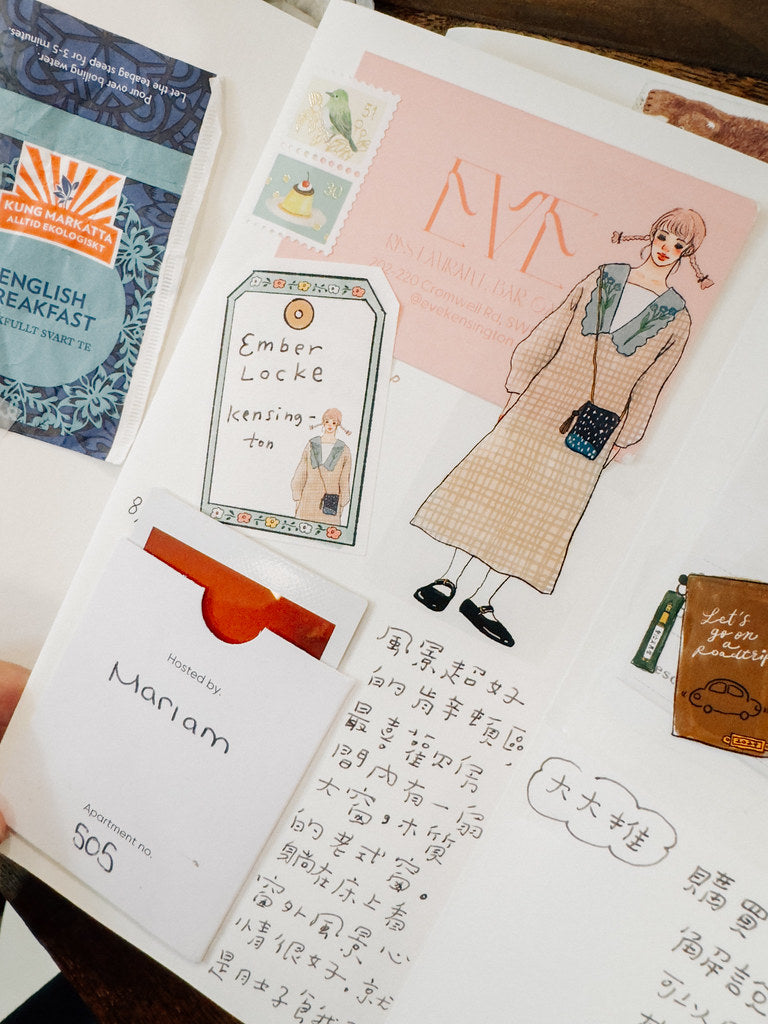 Pour over boiling water.
Let the teabag steep for 3-5 minutes.
KUNG MARKATTA
ALLTID EKOLOGISKT
ENGLISH
BREAKFAST
KFULLT SVART TE
51
30
EVE
RESTAURANT BAR
202-220 Cromwell Rd, SW
@evekensington
Ember
Locke
Kensing-
ton
8,
Hosted by:
Mariam
Apartment no.
505
風景超好
的肯辛頓區,
最喜歡房
間內有一扇
大窗,木質
的老式窗。
躺在床上看
窗外風景心
情很好.就
是
Let's
go on
a
Roadtrip
大大推
購買
解說
可以